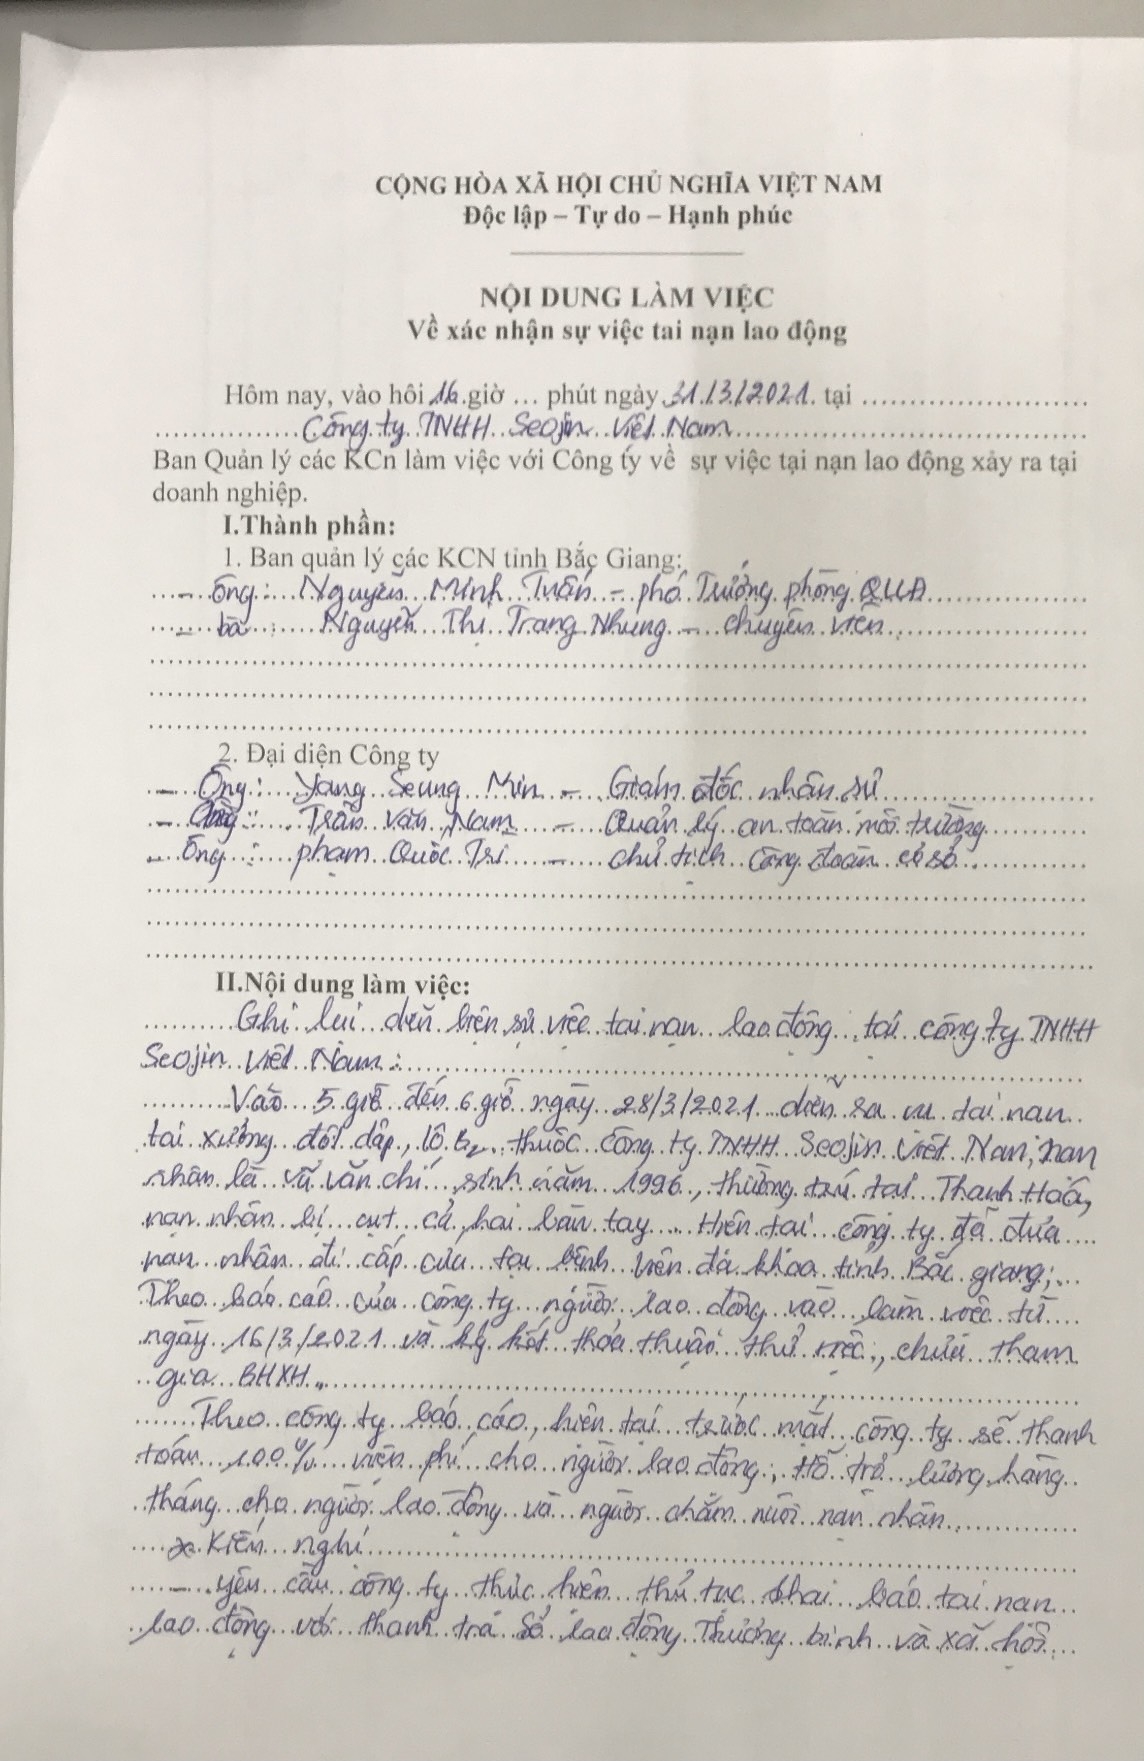 CỘNG HÒA XÃ HỘI CHỦ NGHĨA VIỆT NAM
Độc lập – Tự do – Hạnh phúc
NỘI DUNG LÀM VIỆC
Về xác nhận sự việc tai nạn lao động
Hôm nay, vào hồi 16 giờ ... phút ngày 31/3/2021 tại
Công ty TNHH Seojin Việt Nam
Ban Quản lý các KCn làm việc với Công ty về sự việc tại nạn lao động xảy ra tại
doanh nghiệp.
I.Thành phần:
1. Ban quản lý các KCN tỉnh Bắc Giang:
- Ông: Nguyễn Minh Tuấn - phó Trưởng phòng QLLĐ
- bà : Nguyễn Thị Trang Nhung - chuyên viên
2. Đại diện Công ty
- Ông: Yang Seung Min - Giám đốc nhân sự
- Ông: Trần Văn Nam - Quản lý an toàn môi trường
- Ông : phạm Quốc Trí - chủ tịch công đoàn cơ sở
II.Nội dung làm việc:
Ghi lại diễn biến sự việc tai nạn lao động tại công ty TNHH
Seojin Việt Nam:
Vào 5 giờ đến 6 giờ ngày 28/3/2021 diễn ra vụ tai nạn
tại xưởng đột dập, lô B2 thuộc công ty TNHH Seojin Việt Nam, nạn
nhân là Vũ Văn chí, sinh năm 1996, thường trú tại Thanh Hoá,
nạn nhân bị cụt cả hai bàn tay. Hiện tại công ty đã đưa
nạn nhân đi cấp cứu tại bệnh viện đa khoa tỉnh Bắc giang;
Theo báo cáo của công ty người lao động vào làm việc từ
ngày 16/3/2021 và ký kết thỏa thuận thử việc, chưa tham
gia BHXH.
Theo công ty báo cáo, hiện tại trước mắt công ty sẽ thanh
toán 100% viện phí cho người lao động, Hỗ trợ lương hàng
tháng cho người lao động và người chăm nuôi nạn nhân.
* Kiến nghị
- yêu cầu công ty thực hiện thủ tục khai báo tai nạn
lao động với thanh tra Sở lao động Thương binh và xã hội